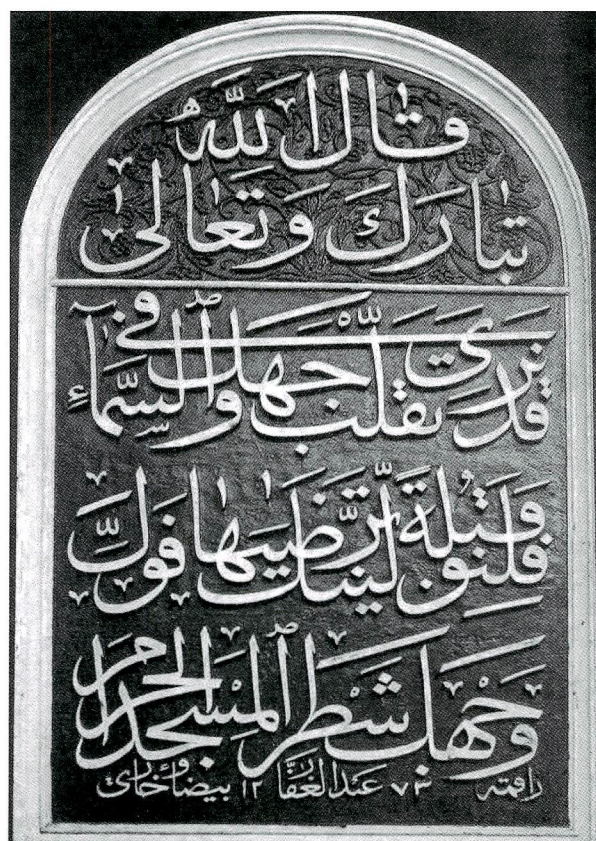 قال الله
تبارك وتعالى
قد نرى تقلب وجهك في السماء
فلنولينك قبلة ترضيها فول
وجهك شطر المسجد الحرام
راقمه ٧٣ عبد الغفار ١٢ بيضاوي